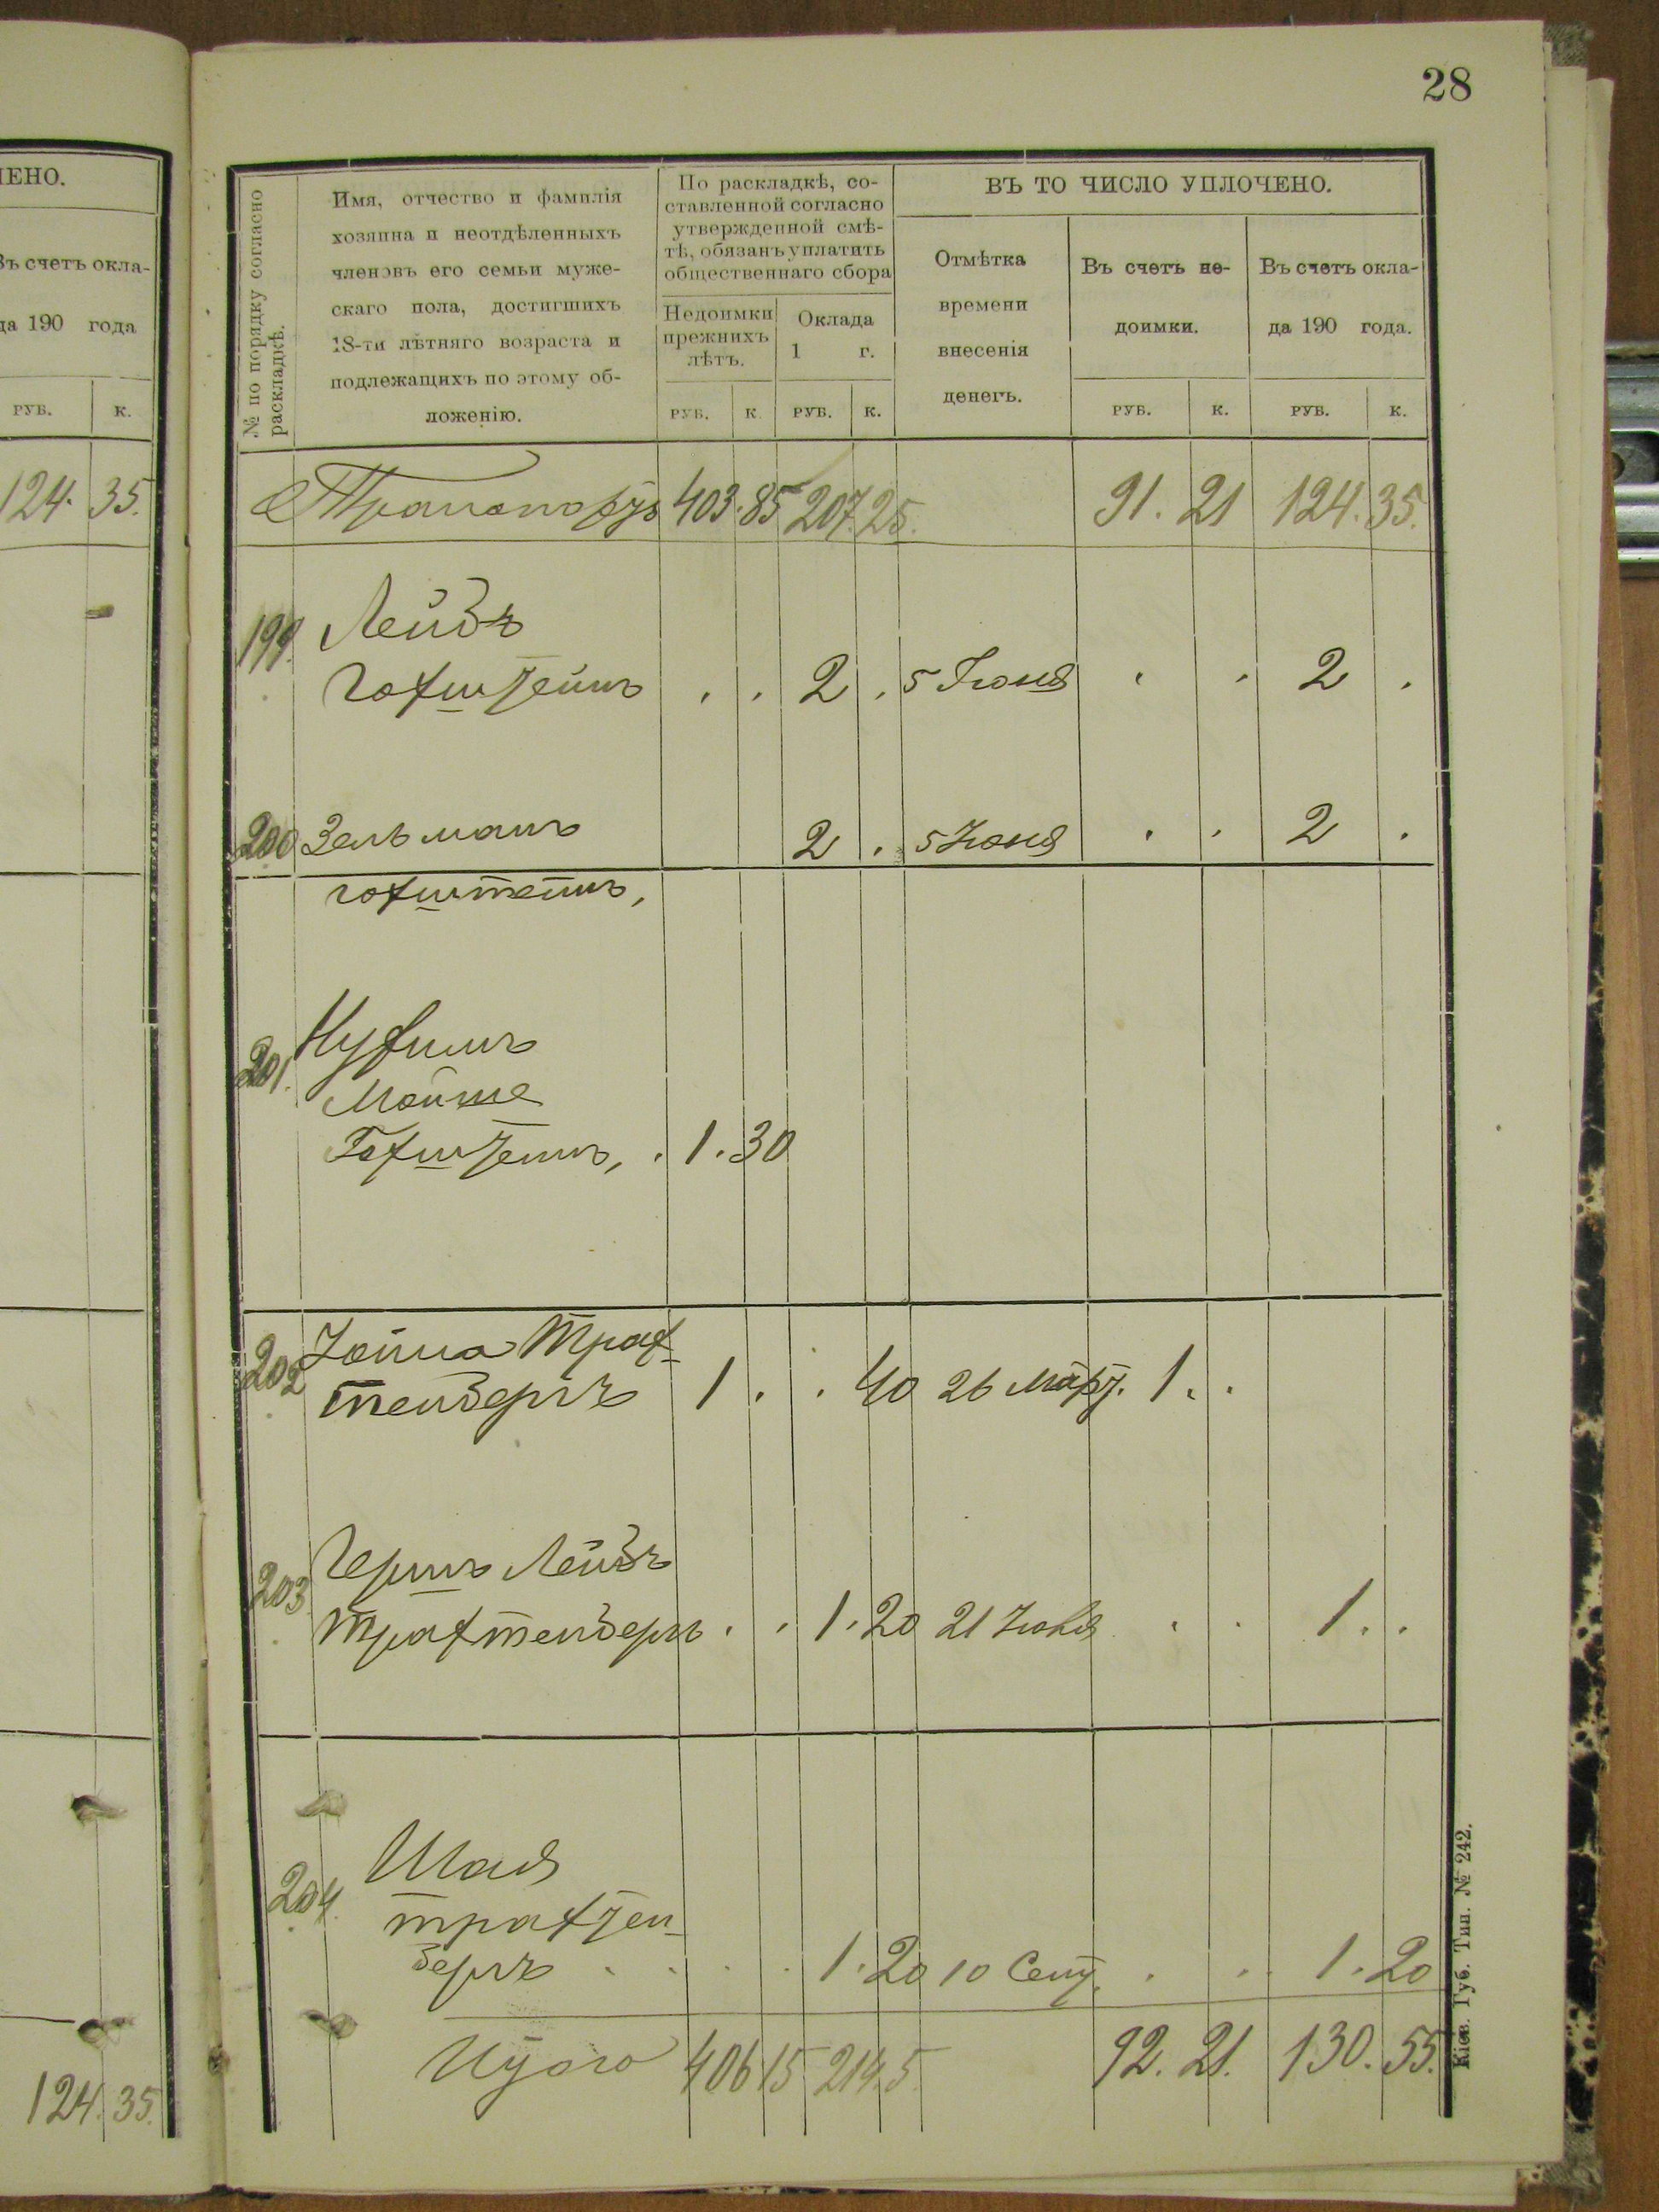 28
ЧЕНО.
Въ счетъ окла-
да 190 года
РУБ. К.
124. 35.
124. 35.
№ по порядку согласно
раскладкѣ.
Имя, отчество и фамилія
хозяина и неотдѣленныхъ
членовъ его семьи муже-
скаго пола, достигшихъ
18-ти лѣтняго возраста и
подлежащихъ по этому об-
ложенію.
По раскладкѣ, со-
ставленной согласно
утвержденной смѣ-
тѣ, обязанъ уплатить
общественнаго сбора
Недоимки
прежнихъ
лѣтъ.
Оклада
1 г.
РУБ. К. РУБ. К.
ВЪ ТО ЧИСЛО УПЛОЧЕНО.
Отмѣтка
времени
внесенія
денегъ.
Въ счетъ не-
доимки.
РУБ. К.
Въ счетъ окла-
да 190 года.
РУБ. К.
Транспортъ 403. 85 207. 25. 91. 21 124. 35.
199. Лейбъ
Гохштейнъ . . 2 . 5 Іюня . . 2 .
200 Зельманъ 2 . 5 Іюня . . 2 .
гохштейнъ,
201. Нухимъ
Мойше
Гохштейнъ, . 1. 30
202 Іойна Трах-
тенбергъ 1 . . 40 26 Март. 1. .
203 Гершъ Лейбъ
Трахтенбергъ . . 1. 20 21 Іюля . . 1. .
204. Шая
трахтен-
бергъ . . . . 1. 20 10 Сент. . . 1. 20
Итого 406 15 214. 5. 92. 21. 130. 55.
Кіев. Губ. Тип. № 242.